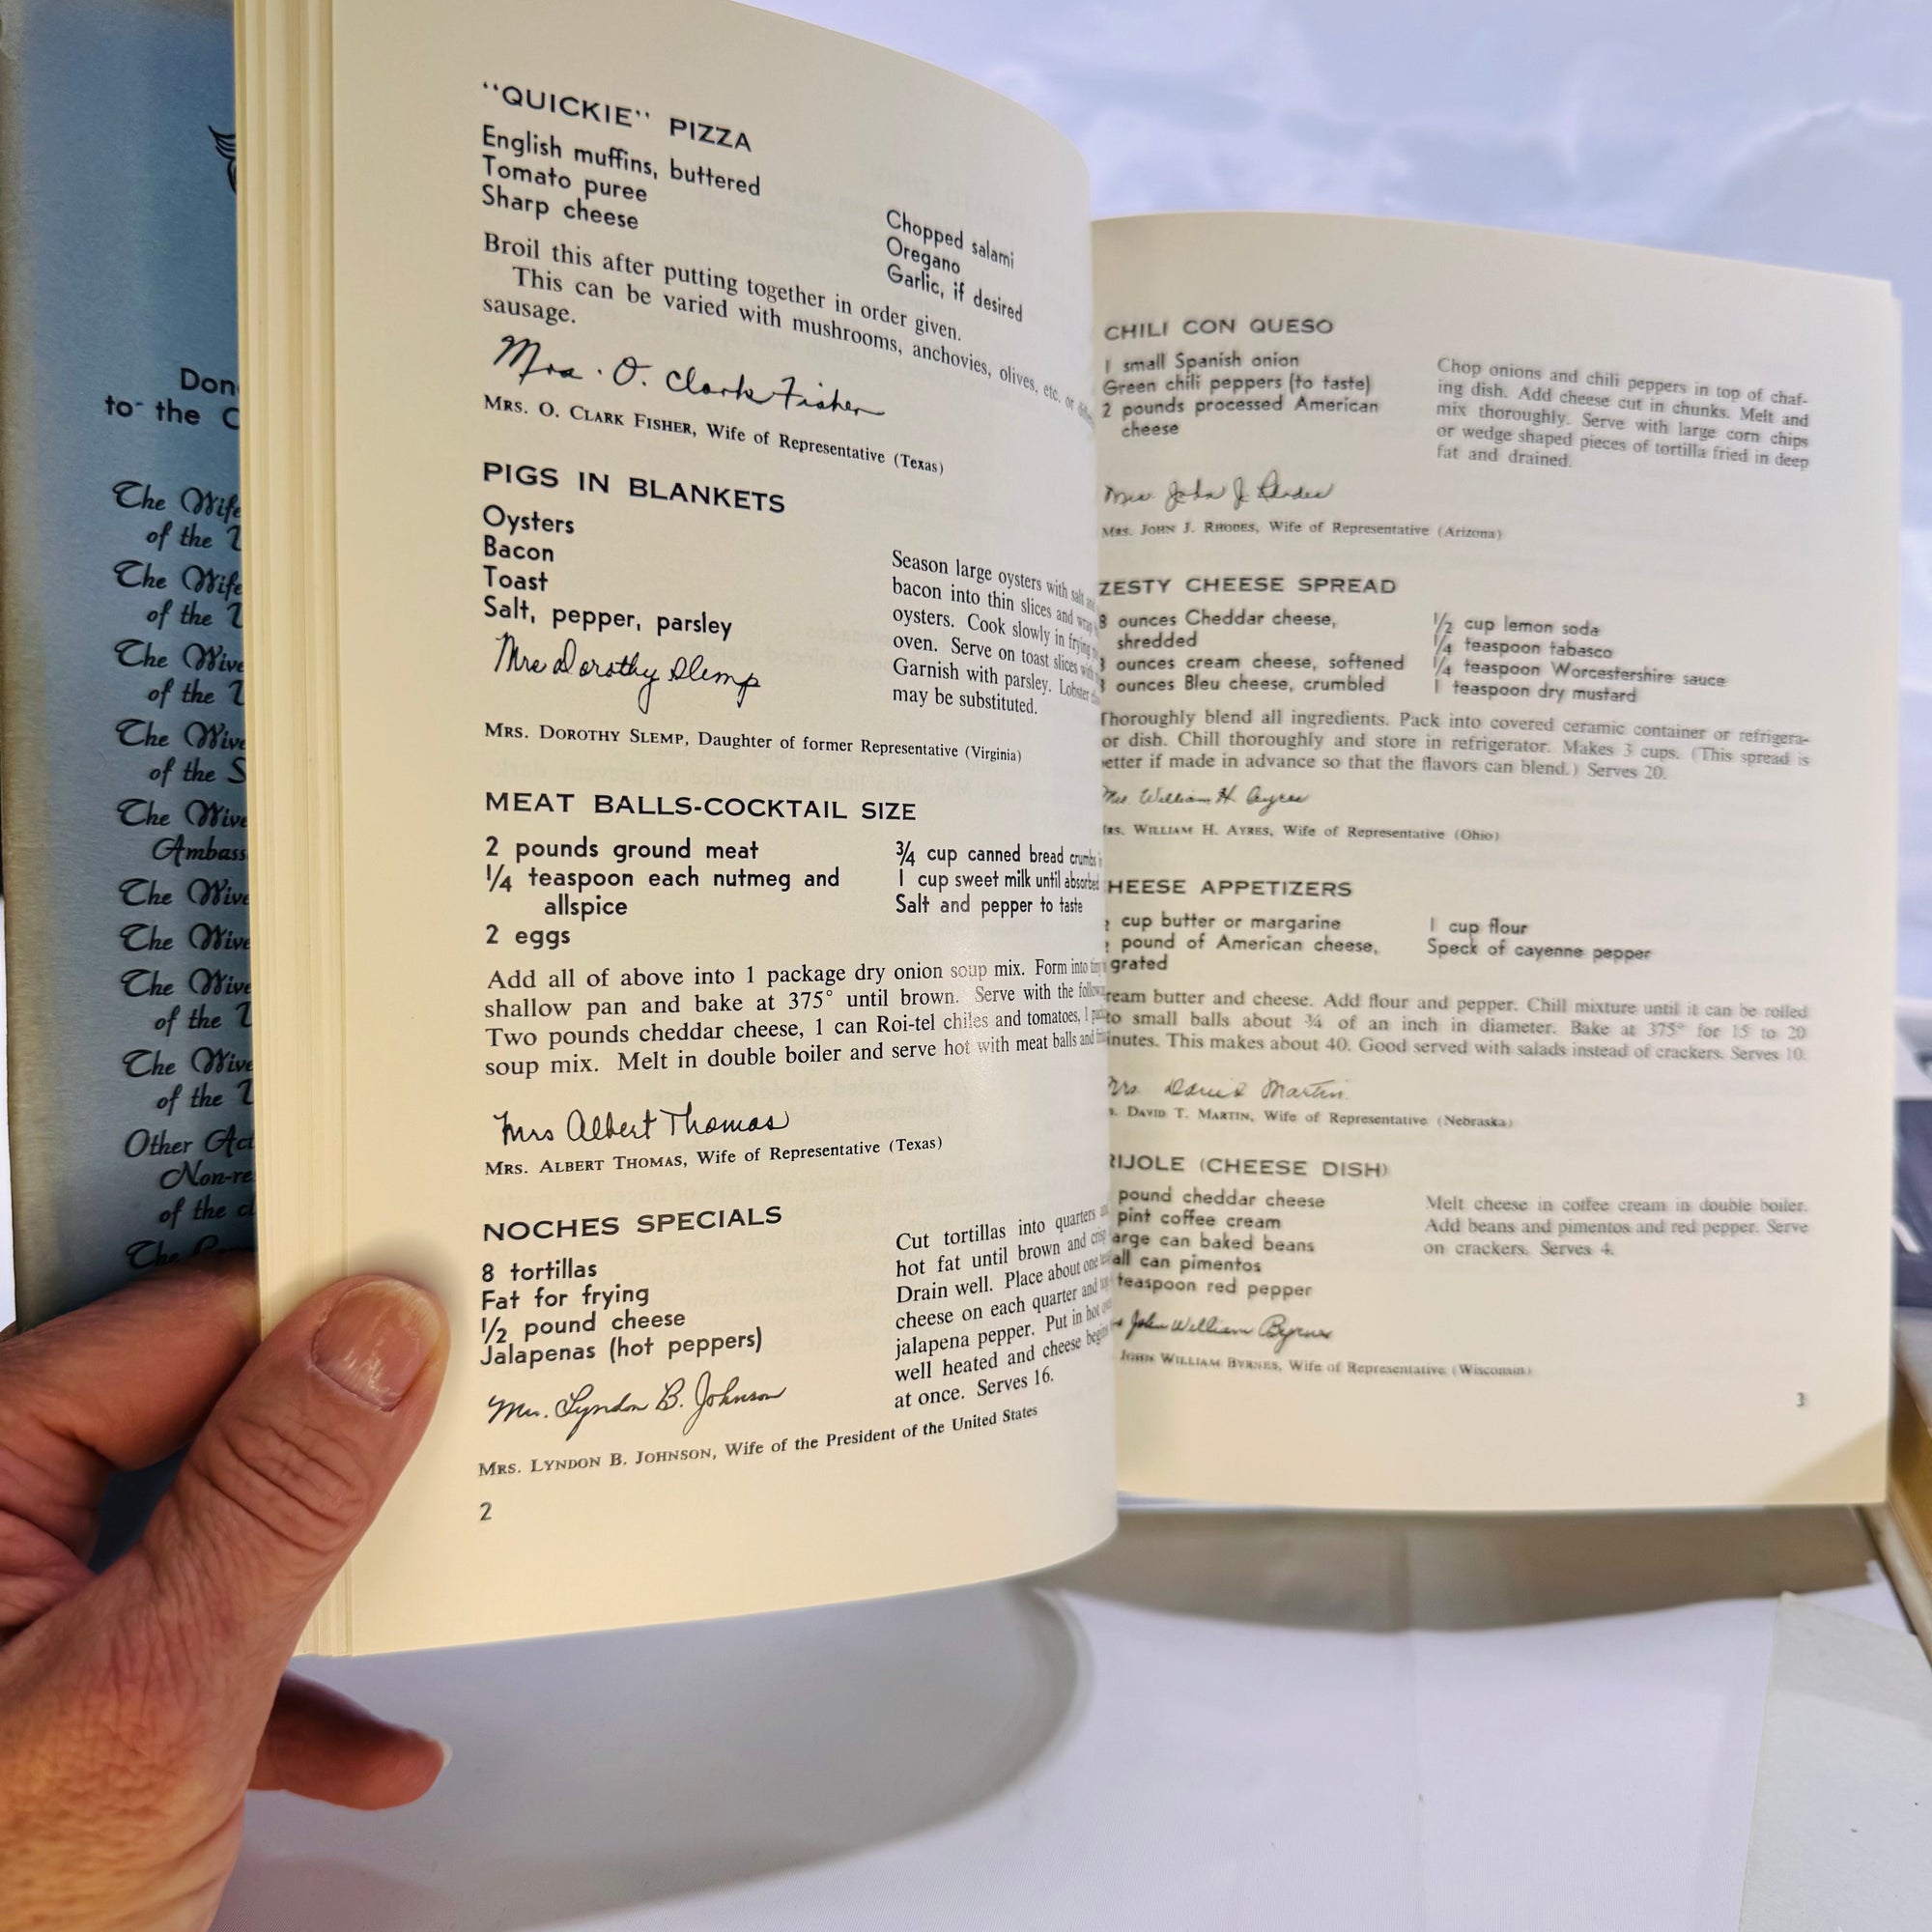 Don
to the C
The Wife
of the
The Wife
of the
The Wive
of the
The Wive
of the S
The Wive
Ambass
The Wive
The Wive
The Wive
of the
The Wive
of the
Other Act
Non-re
of the cl
The
"QUICKIE" PIZZA
English muffins, buttered
Tomato puree
Sharp cheese
Chopped salami
Oregano
Garlic, if desired
Broil this after putting together in order given.
This can be varied with mushrooms, anchovies, olives, etc. or
sausage.
Mrs. O. Clark Fisher
MRS. O. CLARK FISHER, Wife of Representative (Texas)
PIGS IN BLANKETS
Oysters
Bacon
Toast
Salt, pepper, parsley
Season large oysters with salt and
bacon into thin slices and wrap
oysters. Cook slowly in frying
oven. Serve on toast slices with
Garnish with parsley. Lobster
may be substituted.
Mrs Dorothy Slemp
MRS. DOROTHY SLEMP, Daughter of former Representative (Virginia)
MEAT BALLS-COCKTAIL SIZE
2 pounds ground meat
1/4 teaspoon each nutmeg and
allspice
2 eggs
3/4 cup canned bread crumbs
1 cup sweet milk until absorbed
Salt and pepper to taste
Add all of above into 1 package dry onion soup mix. Form into
shallow pan and bake at 375° until brown. Serve with the
Two pounds cheddar cheese, 1 can Roi-tel chiles and tomatoes, 1
soup mix. Melt in double boiler and serve hot with meat balls and
Mrs Albert Thomas
MRS. ALBERT THOMAS, Wife of Representative (Texas)
NOCHES SPECIALS
8 tortillas
Fat for frying
1/2 pound cheese
Jalapenas (hot peppers)
Cut tortillas into quarters
hot fat until brown and
Drain well. Place about one
cheese on each quarter and
jalapena pepper. Put in hot
well heated and cheese begins
at once. Serves 16.
Mrs. Lyndon B. Johnson
MRS. LYNDON B. JOHNSON, Wife of the President of the United States
2
CHILI CON QUESO
1 small Spanish onion
Green chili peppers (to taste)
2 pounds processed American
cheese
Chop onions and chili peppers in top of chaf-
ing dish. Add cheese cut in chunks. Melt and
mix thoroughly. Serve with large corn chips
or wedge shaped pieces of tortilla fried in deep
fat and drained.
Mrs. John J. Rhodes
MRS. JOHN J. RHODES, Wife of Representative (Arizona)
ZESTY CHEESE SPREAD
8 ounces Cheddar cheese,
shredded
3 ounces cream cheese, softened
ounces Bleu cheese, crumbled
1/2 cup lemon soda
1/4 teaspoon tabasco
1/4 teaspoon Worcestershire sauce
1 teaspoon dry mustard
Thoroughly blend all ingredients. Pack into covered ceramic container or refrigera-
or dish. Chill thoroughly and store in refrigerator. Makes 3 cups. (This spread is
etter if made in advance so that the flavors can blend.) Serves 20.
Mrs. William H. Ayres
RS. WILLIAM H. AYRES, Wife of Representative (Ohio)
HEESE APPETIZERS
cup butter or margarine
pound of American cheese,
grated
1 cup flour
Speck of cayenne pepper
ream butter and cheese. Add flour and pepper. Chill mixture until it can be rolled
to small balls about 3/4 of an inch in diameter. Bake at 375° for 15 to 20
inutes. This makes about 40. Good served with salads instead of crackers. Serves 10.
Mrs. David Martin
DAVID T. MARTIN, Wife of Representative (Nebraska)
RIJOLE (CHEESE DISH)
pound cheddar cheese
pint coffee cream
arge can baked beans
all can pimentos
teaspoon red pepper
Melt cheese in coffee cream in double boiler.
Add beans and pimentos and red pepper. Serve
on crackers. Serves 4.
John William Byrnes
JOHN WILLIAM BYRNES, Wife of Representative (Wisconsin)
3